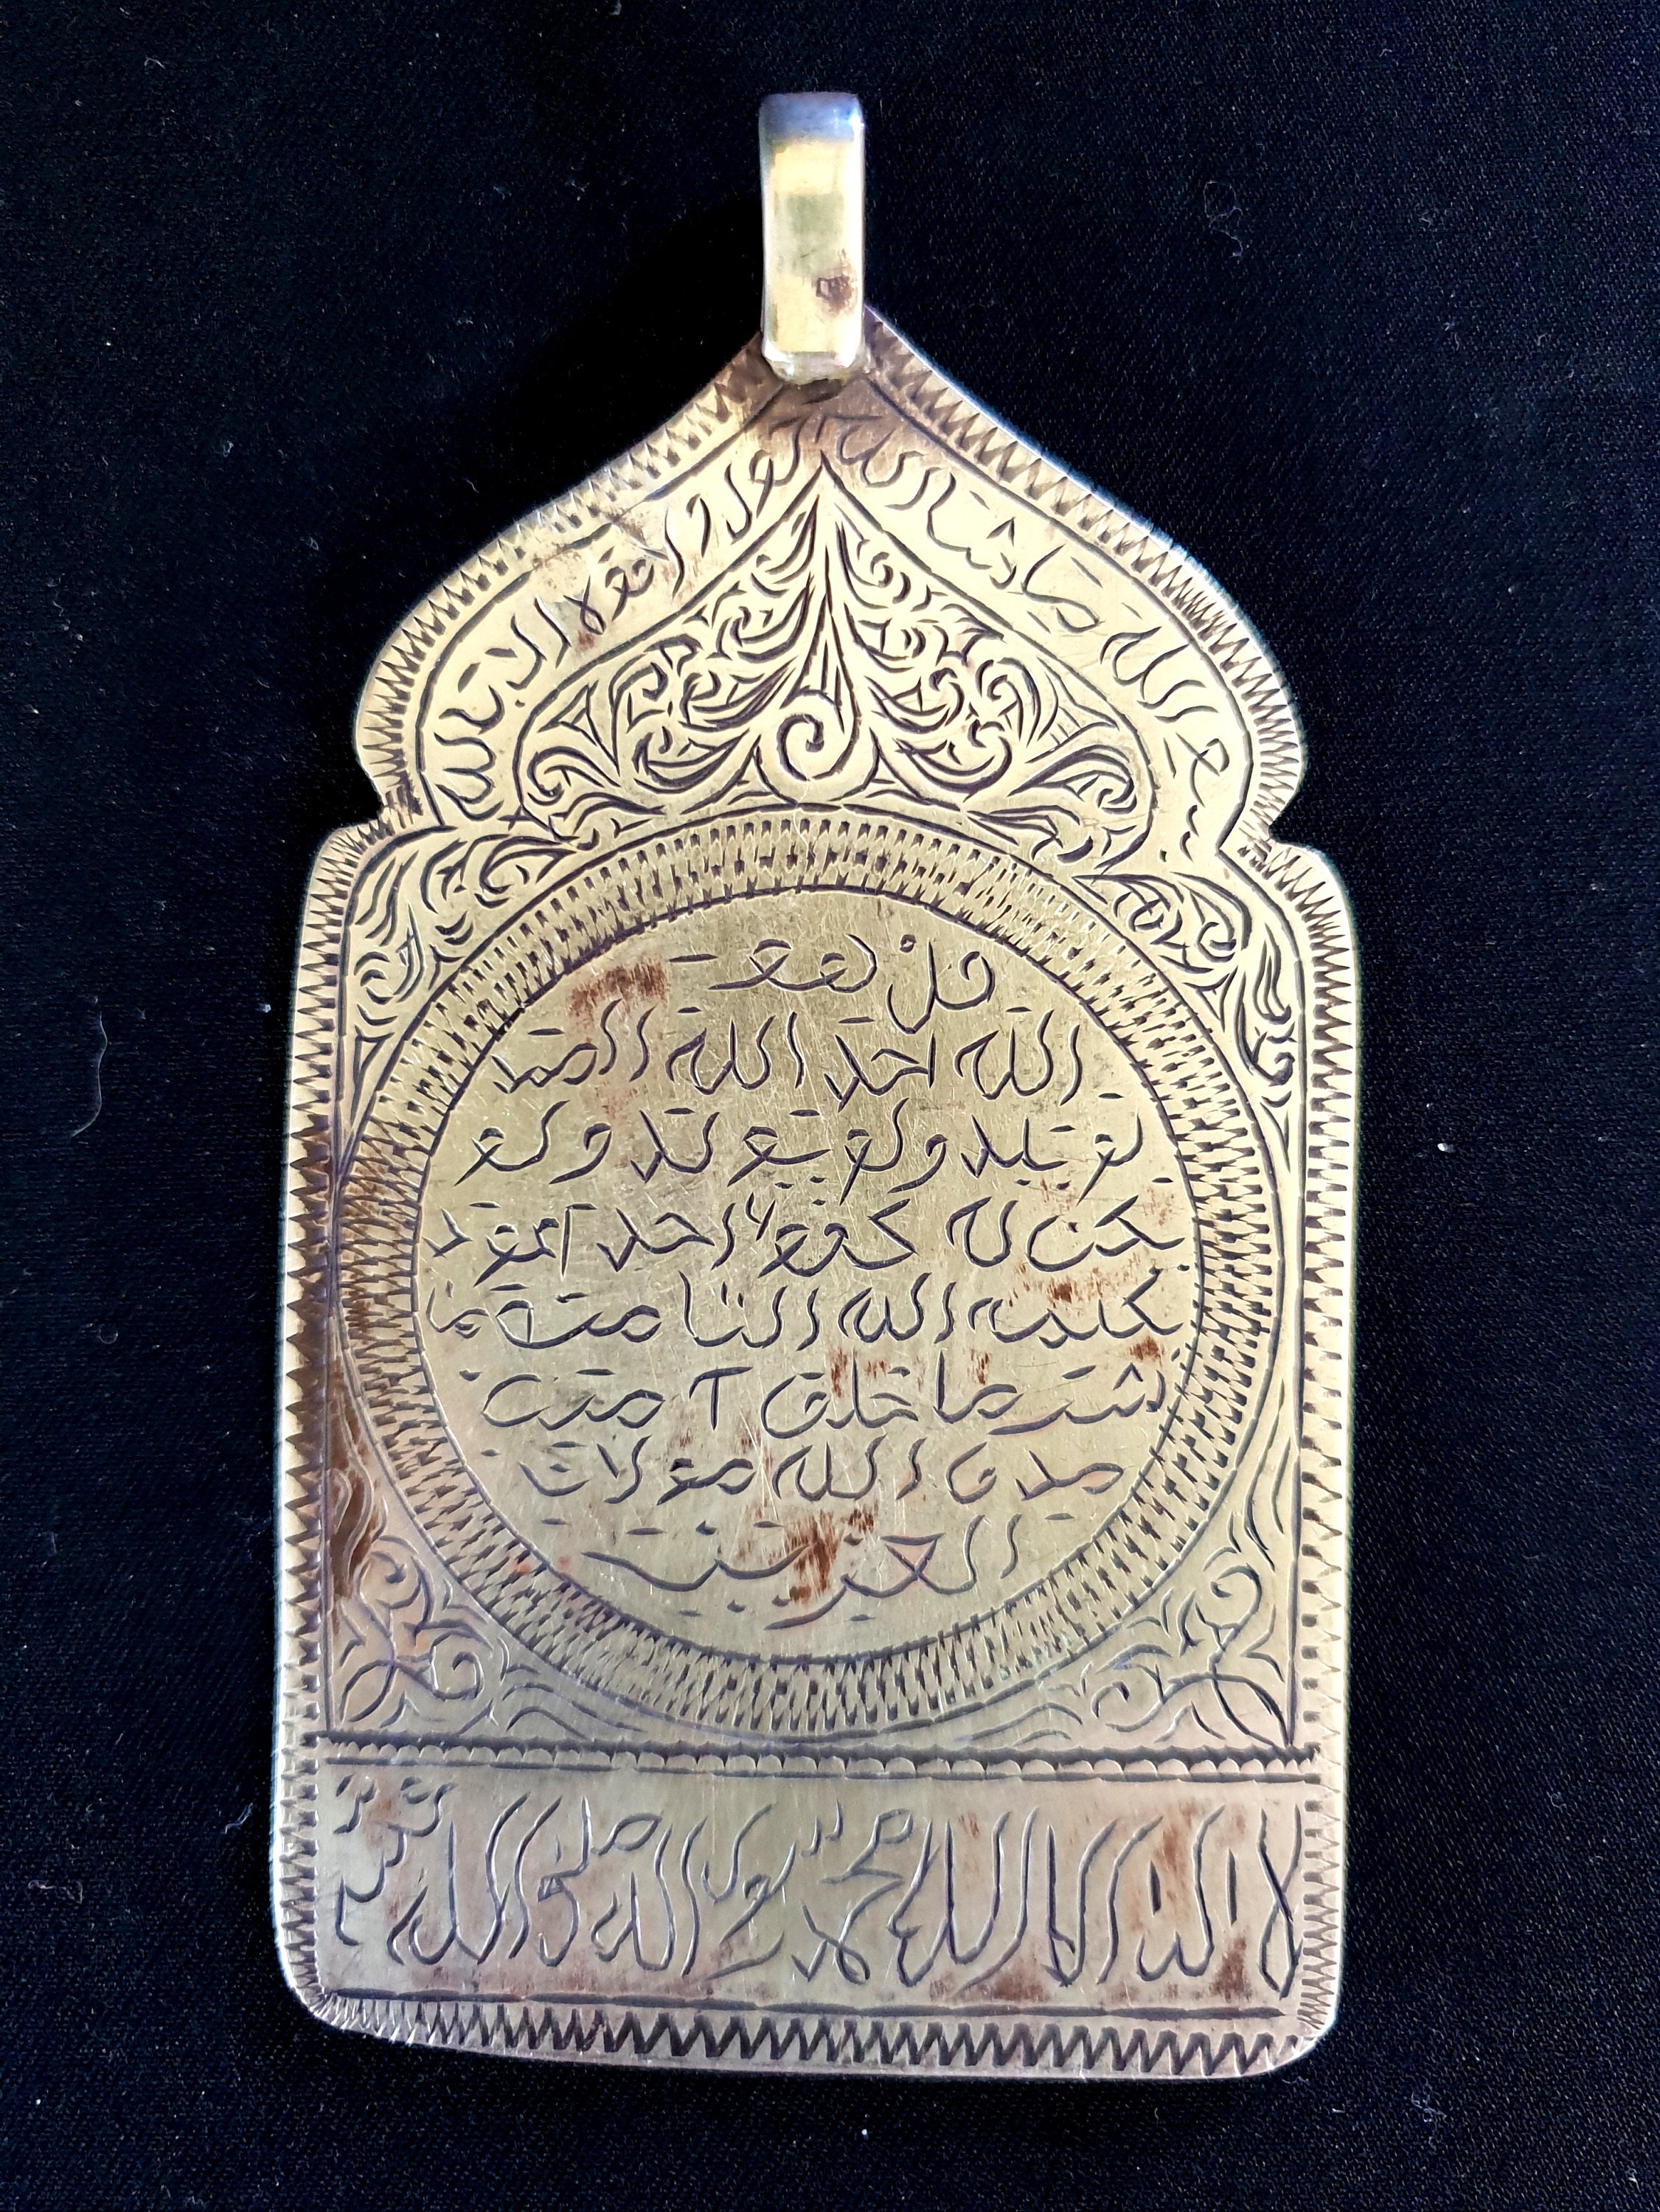 بسم الله ما شا الله
ولا قوة الا بالله
قل هو
الله احد الله الصمد
لم يلد ولم يولد ولم
يكن له كفوا احد اعوذ
بكلمة الله التامة من
شر ما خلق آمنت
صدق الله مولانا
العزيز
لا اله الا الله محمد رسول الله صلى الله